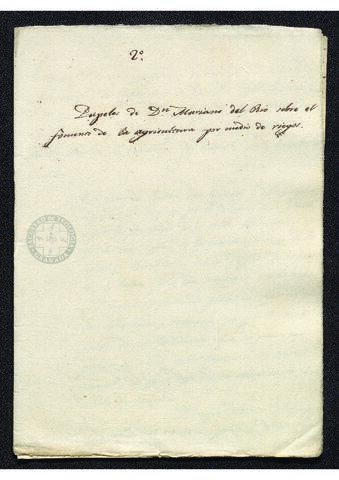 2º
Papeles de Dn. Mariano del Rio sobre el
fomento de la agricultura por medio de riegos.
GRANADA